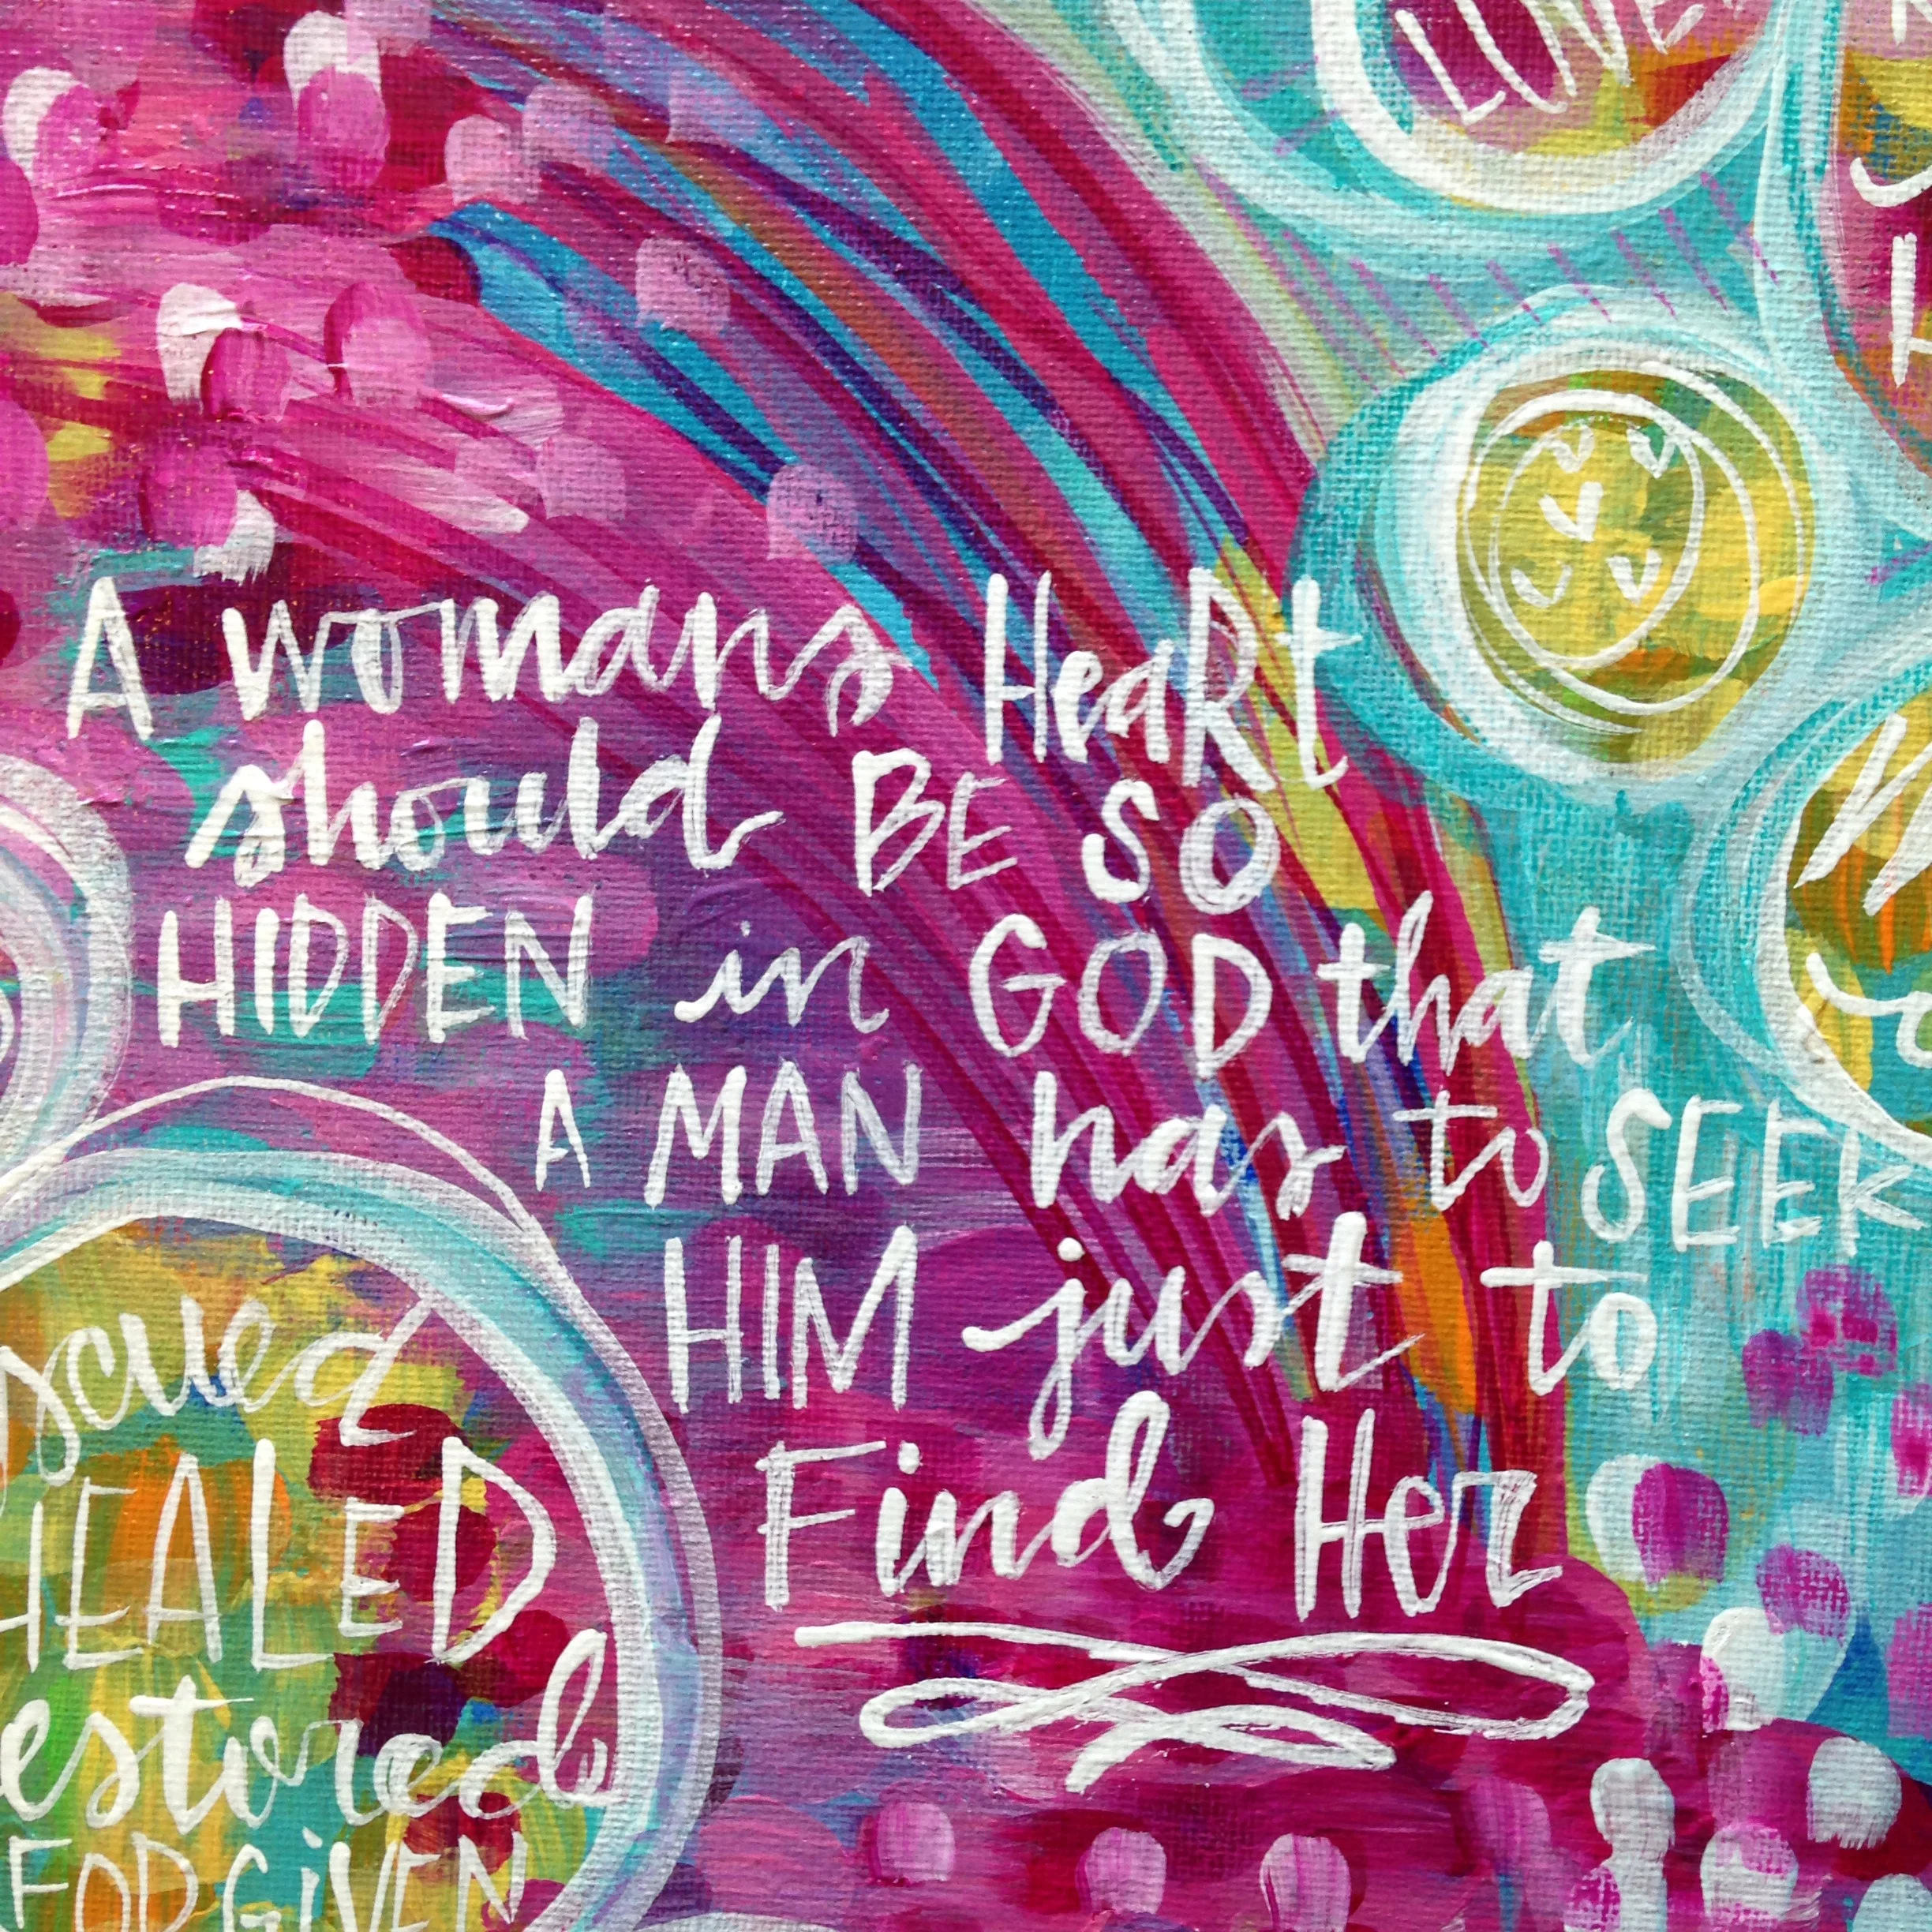 LOVE
A womans HeaRt
should BE SO
HIDDEN in GOD that
A MAN has to SEEK
HIM just to
Find Her
HEALED
FORGIVEN